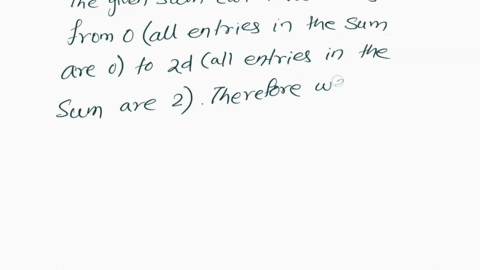 The given sum can
from 0 (all entries in the sum
are 0) to 2d (all entries in the
Sum are 2). Therefore we